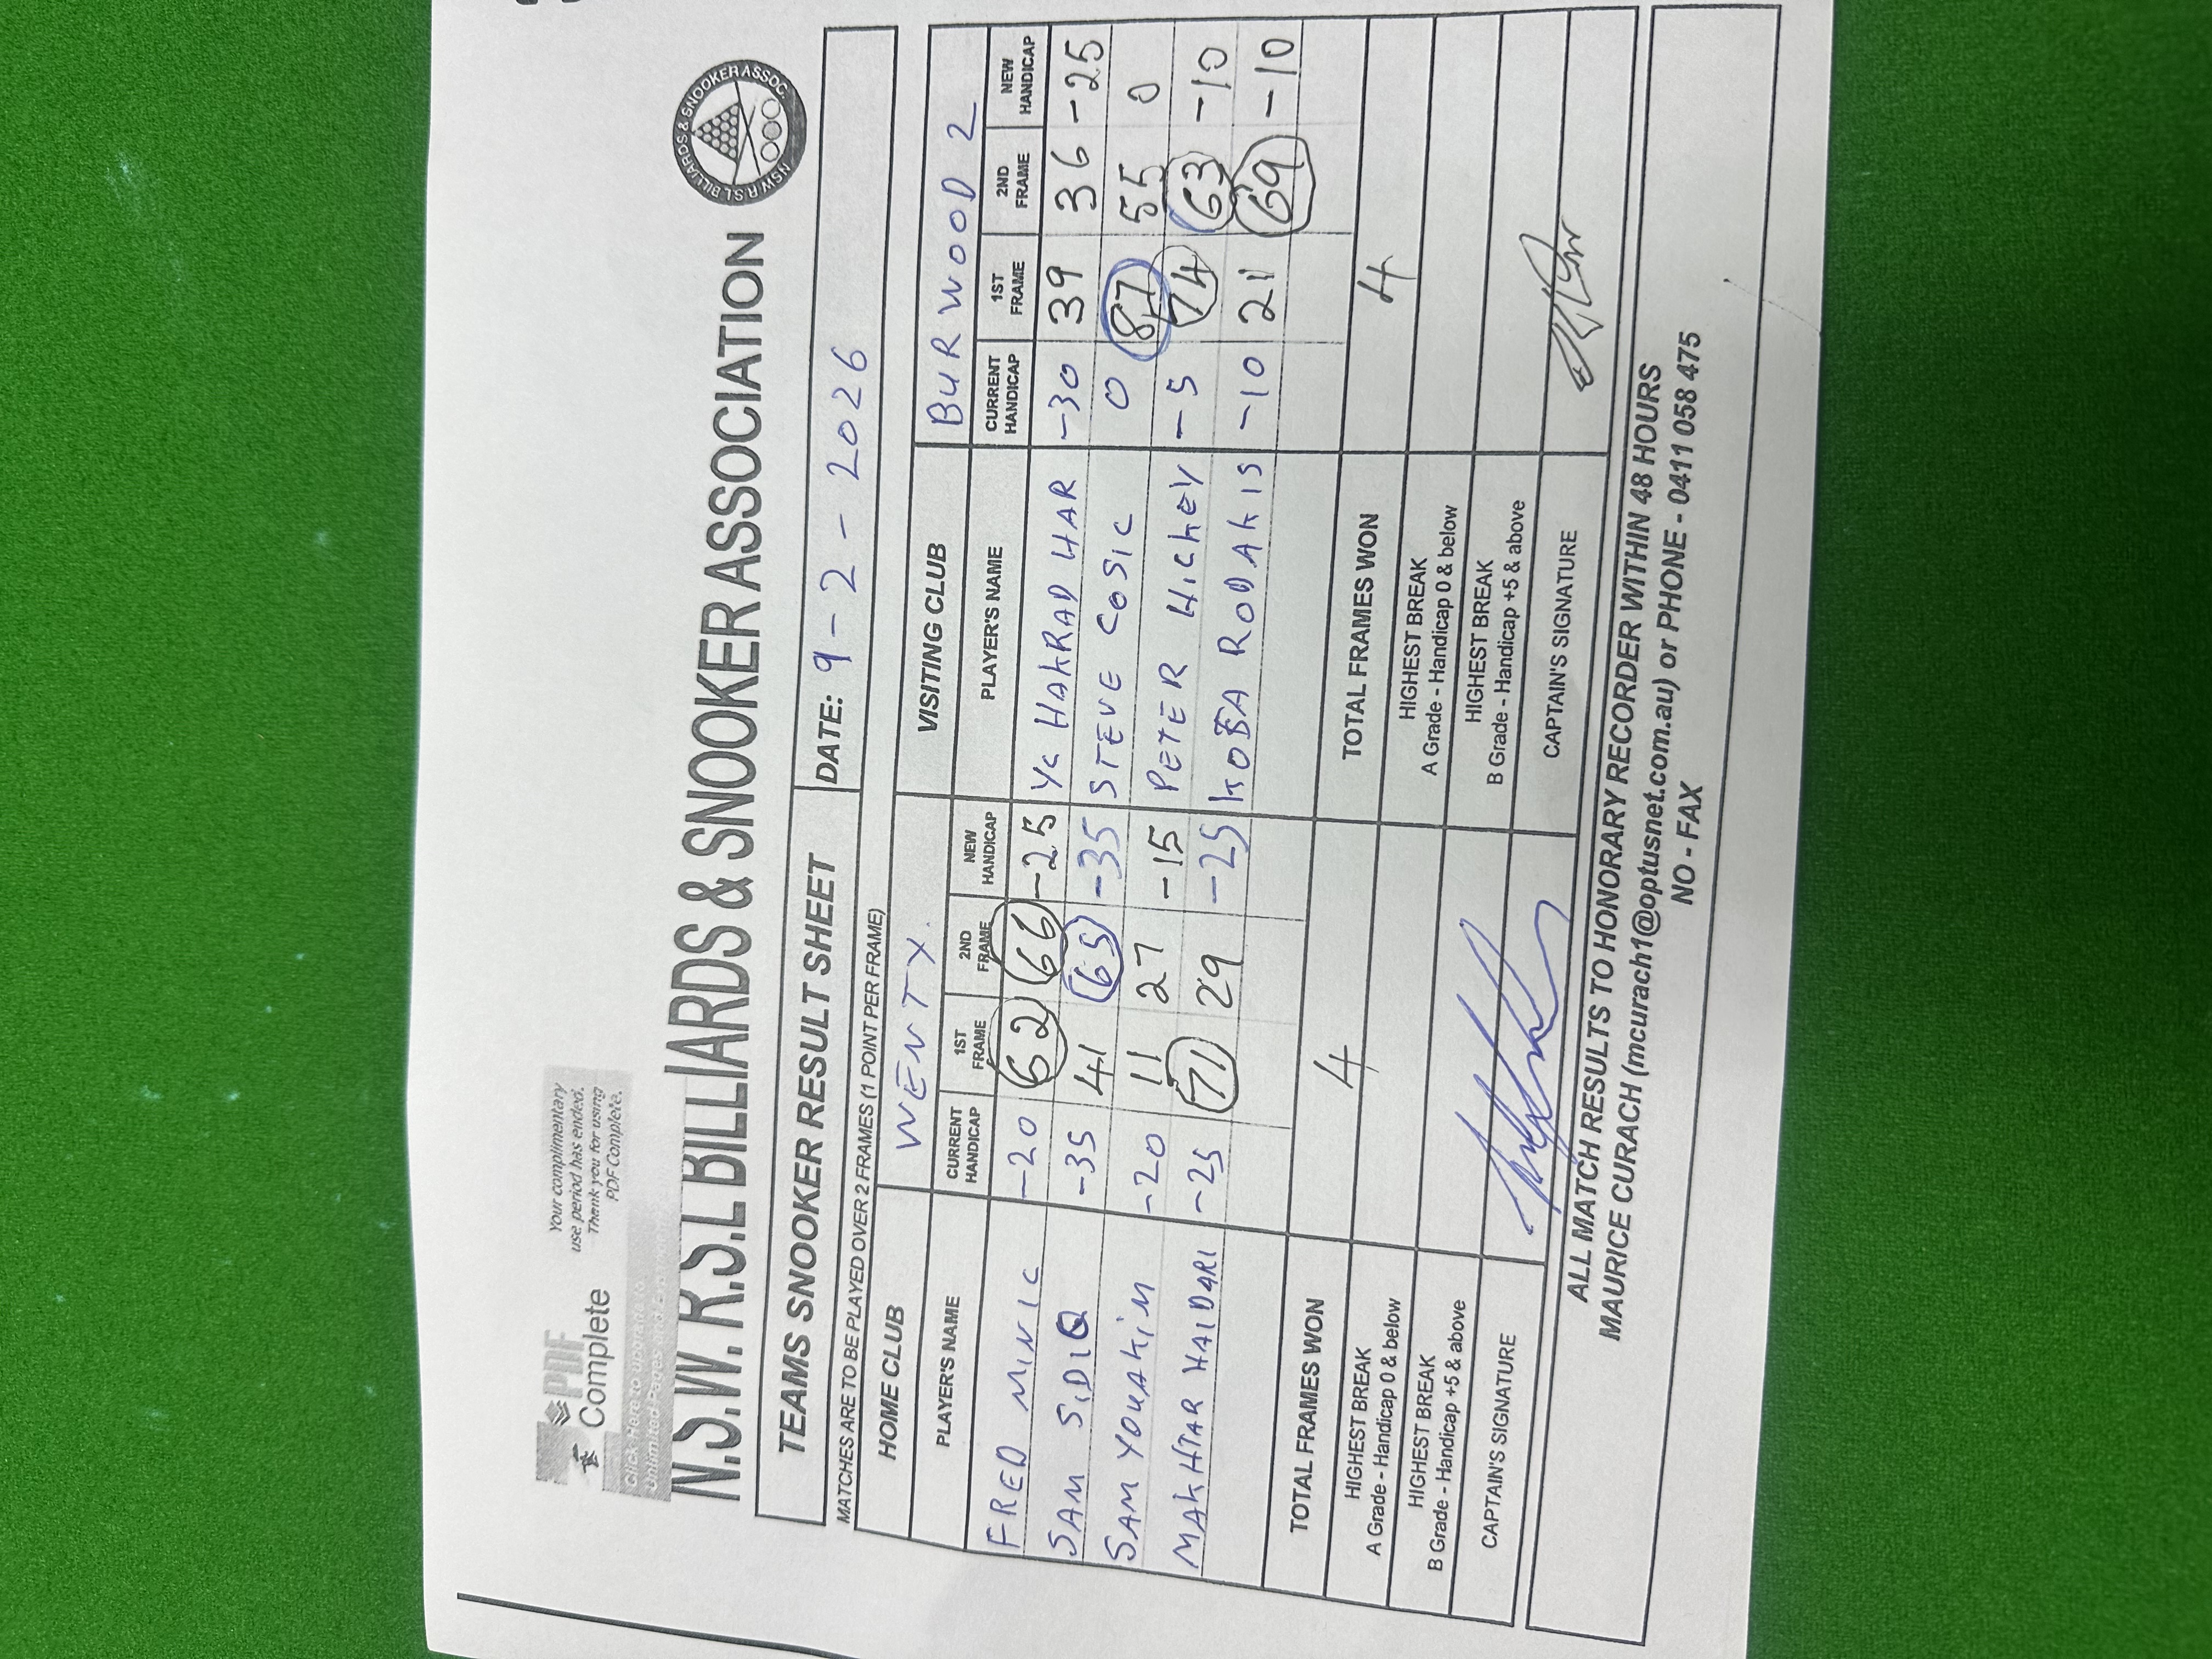 Your complimentary
use period has ended.
Thank you for using
PDF Complete.
PDF
Complete
Click Here to upgrade to
Unlimited Pages and Expanded Features
N.S.W. R.S.L BILLIARDS & SNOOKER ASSOCIATION
NSW R.S.L BILLIARDS & SNOOKER ASSOC.
TEAMS SNOOKER RESULT SHEET DATE: 9-2-2026
MATCHES ARE TO BE PLAYED OVER 2 FRAMES (1 POINT PER FRAME)
HOME CLUB WENTX VISITING CLUB BURWOOD 2
PLAYER'S NAME CURRENT HANDICAP 1ST FRAME 2ND FRAME NEW HANDICAP PLAYER'S NAME CURRENT HANDICAP 1ST FRAME 2ND FRAME NEW HANDICAP
FRED MINIC -20 62 66 -25 YC HAKRAD HAR -30 39 36 -25
SAM SIDIQ -35 41 65 -35 STEVE COSIC 0 87 55 0
SAM YOUAKIM -20 11 27 -15 PETER HICKEY -5 74 63 -10
MAKHTAR HAIDARI -25 71 29 -25 KOBA RODAKIS -10 21 69 -10
TOTAL FRAMES WON 4 TOTAL FRAMES WON 4
HIGHEST BREAK
A Grade - Handicap 0 & below
HIGHEST BREAK
A Grade - Handicap 0 & below
HIGHEST BREAK
B Grade - Handicap +5 & above
HIGHEST BREAK
B Grade - Handicap +5 & above
CAPTAIN'S SIGNATURE CAPTAIN'S SIGNATURE
ALL MATCH RESULTS TO HONORARY RECORDER WITHIN 48 HOURS
MAURICE CURACH (mcurach1@optusnet.com.au) or PHONE - 0411 058 475
NO - FAX